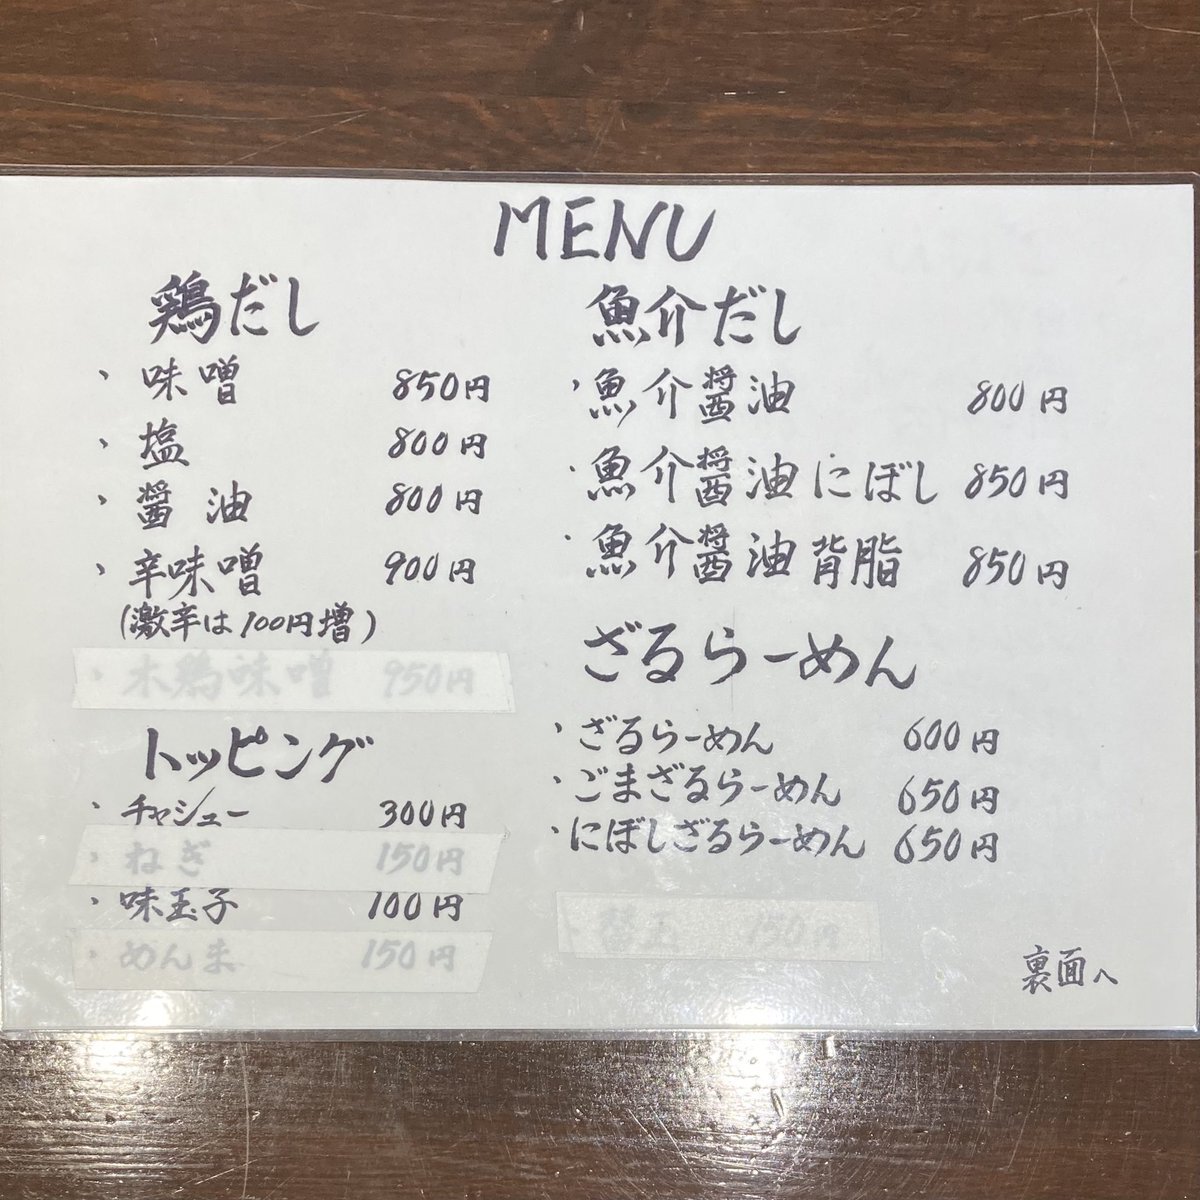 MENU
鶏だし
・味噌 850円
・塩 800円
・醤油 800円
・辛味噌 900円
(激辛は100円増)
・木鶏味噌 950円
トッピング
・チャシュー 300円
・ねぎ 150円
・味玉子 100円
・めんま 150円
魚介だし
・魚介醤油 800円
・魚介醤油にぼし 850円
・魚介醤油背脂 850円
ざるらーめん
・ざるらーめん 600円
・ごまざるらーめん 650円
・にぼしざるらーめん 650円
・替玉 150円
裏面へ